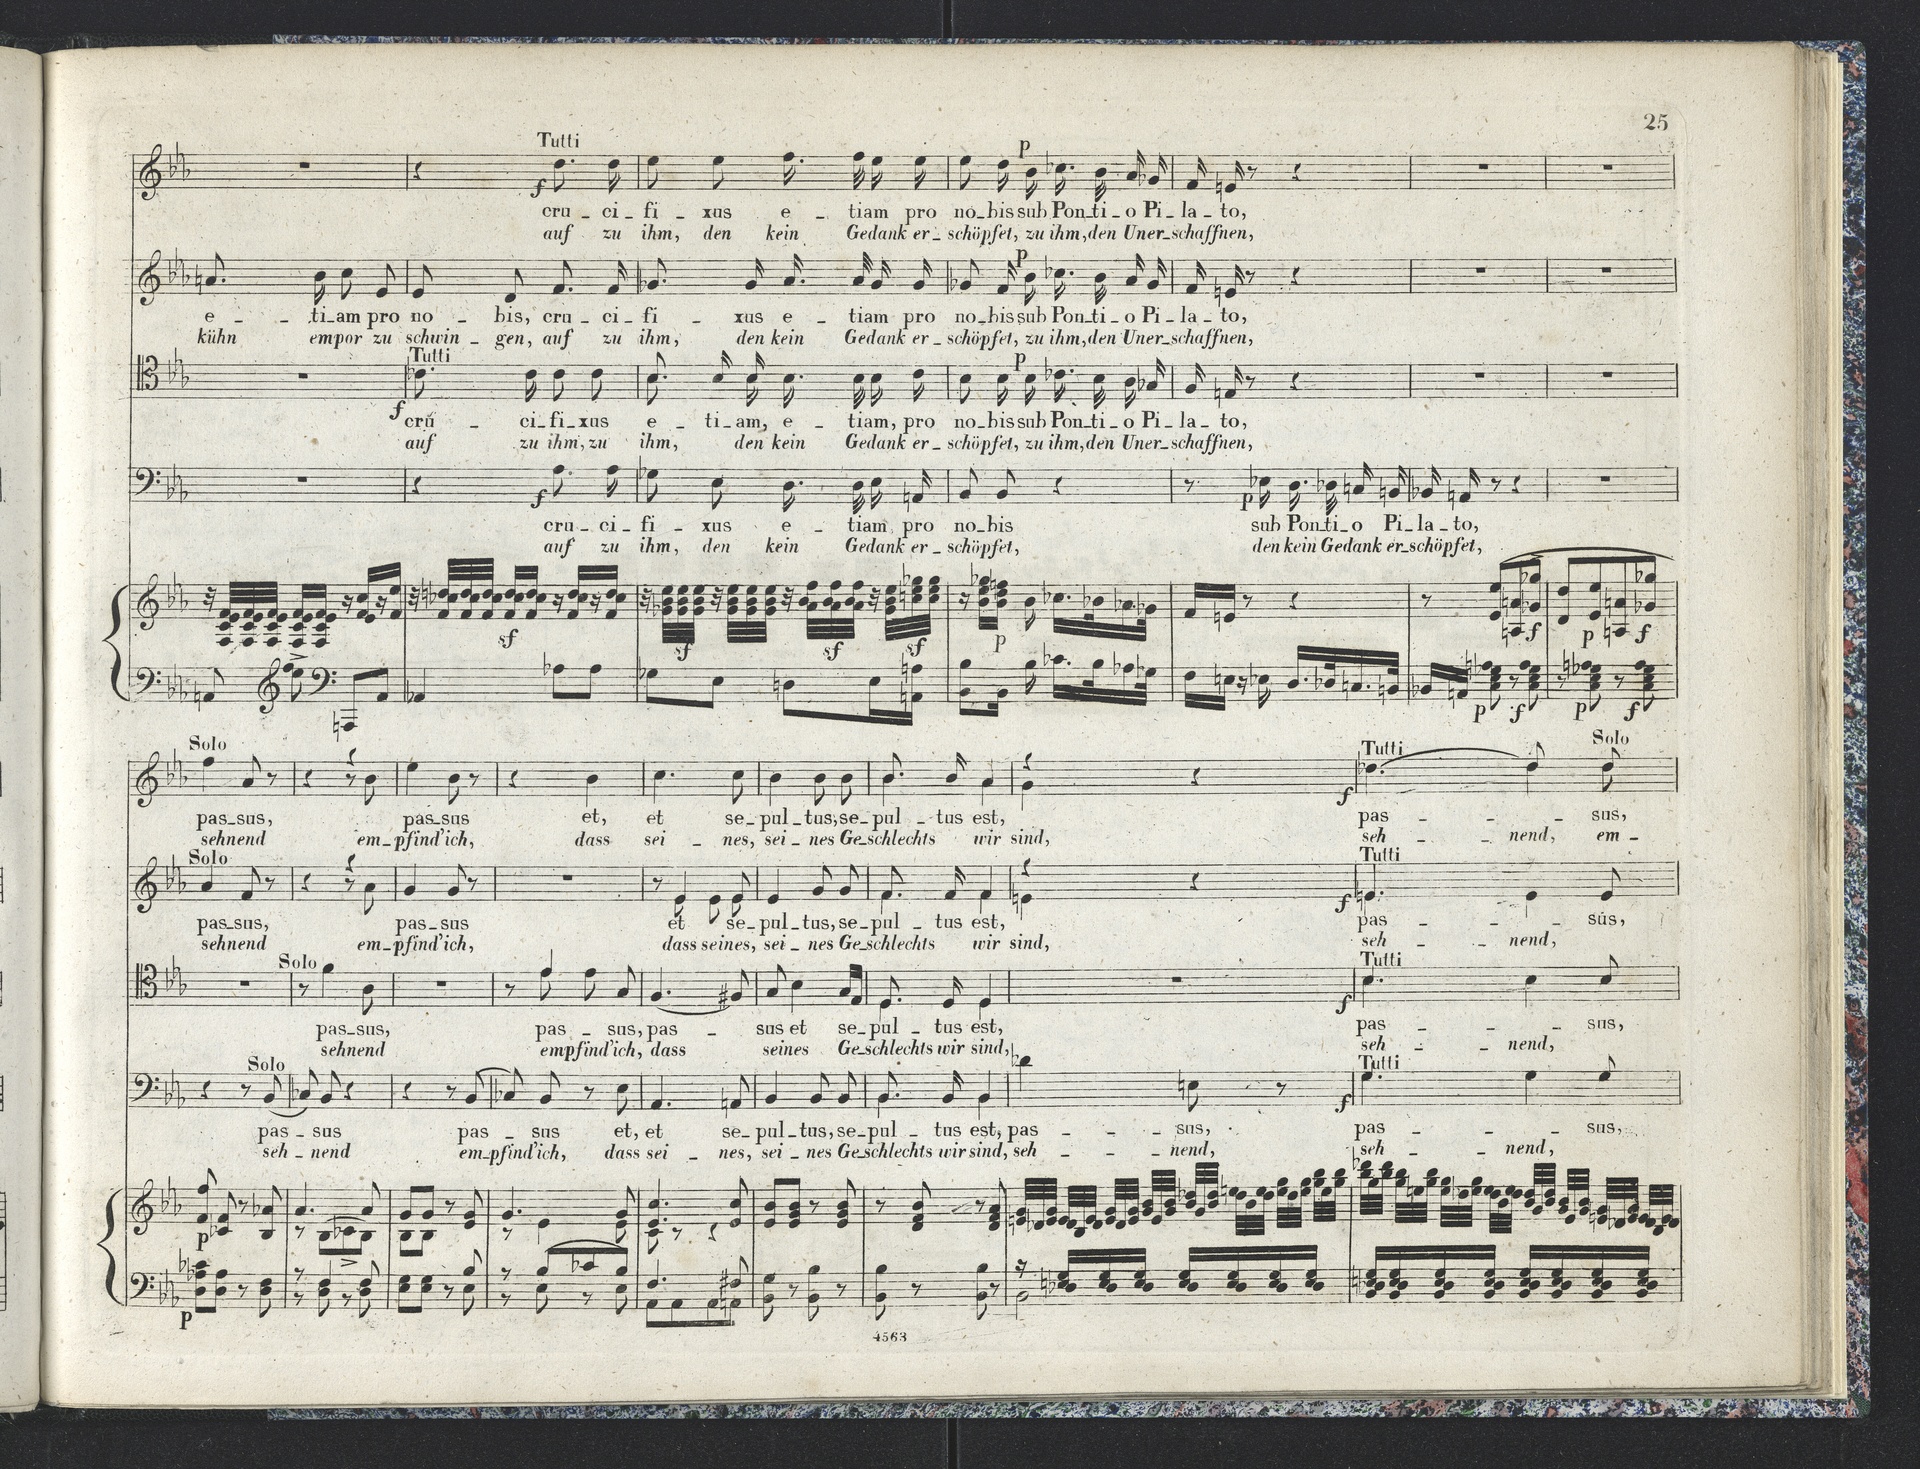 25
Tutti
f p
cru - ci - fi - xus e - tiam pro no - bis sub Pon - ti - o Pi - la - to,
auf zu ihm, den kein Gedank er - schöpfet, zu ihm, den Uner - schaffnen,
p
e - ti - am pro no - bis, cru - ci - fi - xus e - tiam pro no - bis sub Pon - ti - o Pi - la - to,
kühn empor zu schwin - gen, auf zu ihm, den kein Gedank er - schöpfet, zu ihm, den Uner - schaffnen,
Tutti
f p
cru - ci - fi - xus e - ti - am, e - tiam, pro no - bis sub Pon - ti - o Pi - la - to,
auf zu ihm, zu ihm, den kein Gedank er - schöpfet, zu ihm, den Uner - schaffnen,
f p
cru - ci - fi - xus e - tiam pro no - bis sub Pon - ti - o Pi - la - to,
auf zu ihm, den kein Gedank er - schöpfet, den kein Gedank er - schöpfet,
sf sf sf sf p f p f
p f p f
Solo Tutti Solo
f
pas - sus, pas - sus et, et se - pul - tus, se - pul - tus est, pas - sus,
sehnend em - pfind' ich, dass sei - nes, sei - nes Ge - schlechts wir sind, seh - nend, em -
Solo Tutti
f
pas - sus, pas - sus et se - pul - tus, se - pul - tus est, pas - sus,
sehnend em - pfind' ich, dass seines, sei - nes Ge - schlechts wir sind, seh - nend,
Solo Tutti
f
pas - sus, pas - sus, pas - sus et se - pul - tus est, pas - sus,
sehnend empfind' ich, dass seines Ge - schlechts wir sind, seh - nend,
Solo Tutti
f
pas - sus pas - sus et, et se - pul - tus, se - pul - tus est, pas - sus, pas - sus,
seh - nend em - pfind' ich, dass sei - nes, sei - nes Ge - schlechts wir sind, seh - nend, seh - nend,
p
p
4563